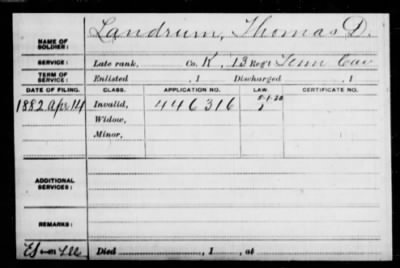 NAME OF SOLDIER: Landrum, Thomas D.
SERVICE: Late rank, Co. K, 13 Reg't Tenn Cav
TERM OF SERVICE: Enlisted , 1 Discharged , 1
DATE OF FILING. CLASS. APPLICATION NO. LAW. CERTIFICATE NO.
1882 Apr 14 Invalid, 446316
Widow,
Minor,
ADDITIONAL SERVICES:
REMARKS:
Died , 1 , at